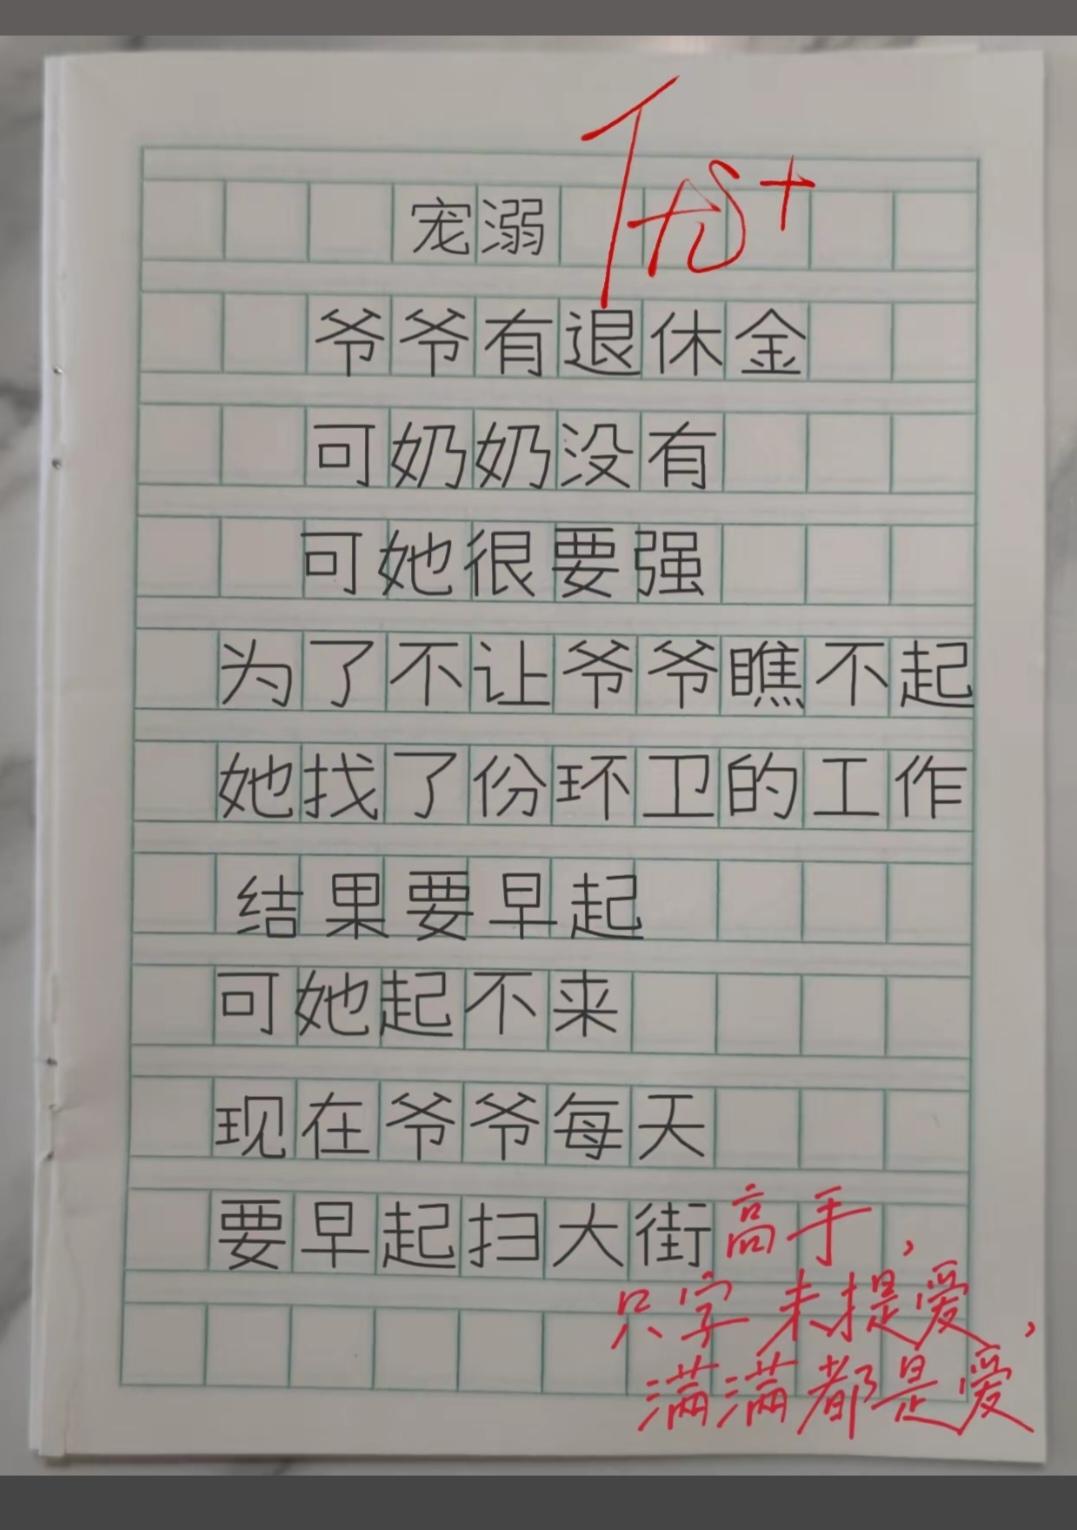 优+
宠溺
爷爷有退休金
可奶奶没有
可她很要强
为了不让爷爷瞧不起
她找了份环卫的工作
结果要早起
可她起不来
现在爷爷每天
要早起扫大街
高手，
只字未提爱，
满满都是爱